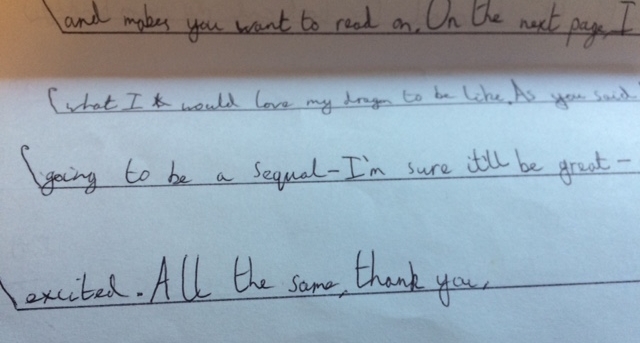 and makes you want to read on. On the next page, I
what I would love my dragon to be like. As you said
going to be a sequal - I'm sure it'll be great -
excited. All the same, thank you,